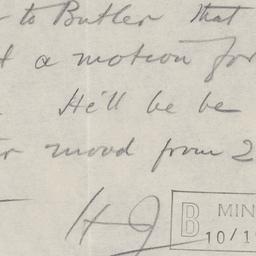 to Butler that
a motion for
He'll be be
mood from 2
HJ
B MIN
10/1